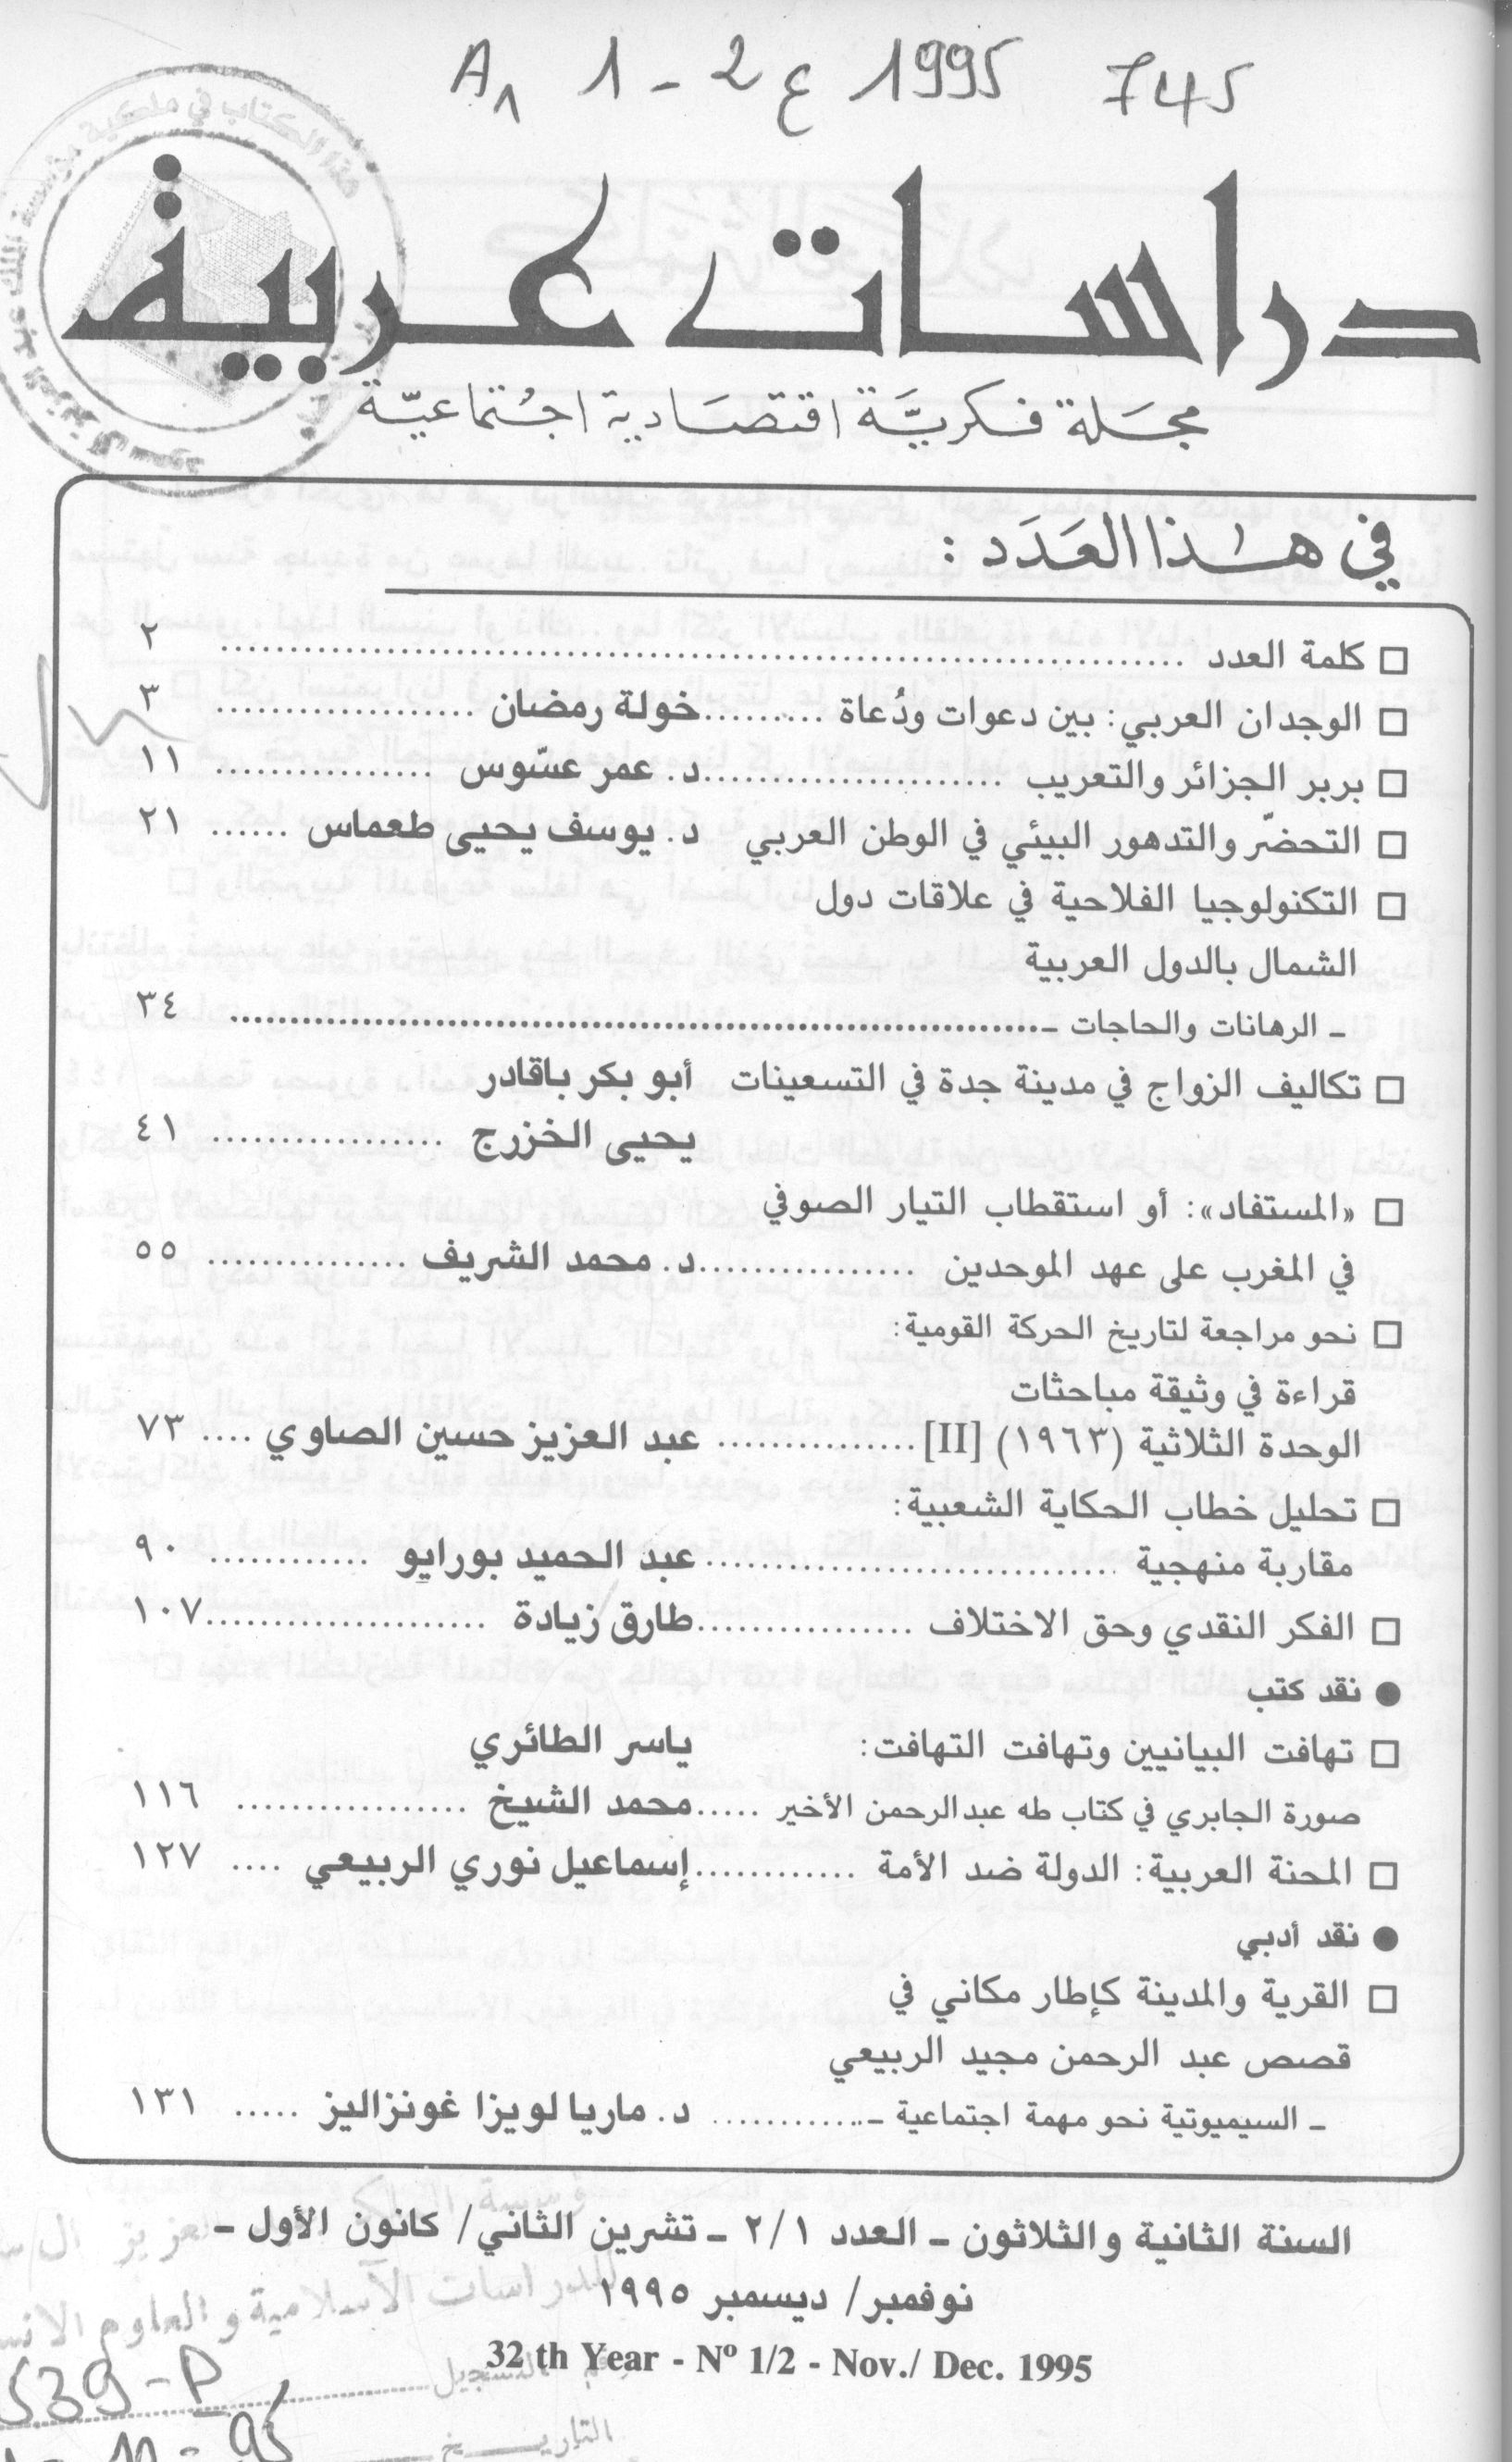 A1 1 - 2 ع 1995 745
دراسات عربية
مجلة فكريَّة اقتصادية اجتماعيّة
في هذا العَدَد :
□ كلمة العدد .......... ٢
□ الوجدان العربي: بين دعوات ودُعاة .......... خولة رمضان .......... ٣
□ بربر الجزائر والتعريب .......... د. عمر عسّوس .......... ١١
□ التحضّر والتدهور البيئي في الوطن العربي د. يوسف يحيى طعماس ...... ٢١
□ التكنولوجيا الفلاحية في علاقات دول
الشمال بالدول العربية
ـ الرهانات والحاجات ـ .......... ٣٤
□ تكاليف الزواج في مدينة جدة في التسعينات أبو بكر باقادر
يحيى الخزرج .......... ٤١
□ «المستفاد»: أو استقطاب التيار الصوفي
في المغرب على عهد الموحدين .......... د. محمد الشريف .......... ٥٥
□ نحو مراجعة لتاريخ الحركة القومية:
قراءة في وثيقة مباحثات
الوحدة الثلاثية (١٩٦٣) [II] .......... عبد العزيز حسين الصاوي .... ٧٣
□ تحليل خطاب الحكاية الشعبية:
مقاربة منهجية .......... عبد الحميد بورايو .......... ٩٠
□ الفكر النقدي وحق الاختلاف .......... طارق زيادة .......... ١٠٧
● نقد كتب
□ تهافت البيانيين وتهافت التهافت: ياسر الطائري
صورة الجابري في كتاب طه عبدالرحمن الأخير ..... محمد الشيخ .......... ١١٦
□ المحنة العربية: الدولة ضد الأمة .......... إسماعيل نوري الربيعي .... ١٢٧
● نقد أدبي
□ القرية والمدينة كإطار مكاني في
قصص عبد الرحمن مجيد الربيعي
ـ السيميوتية نحو مهمة اجتماعية ـ .......... د. ماريا لويزا غونزاليز ..... ١٣١
السنة الثانية والثلاثون ـ العدد ٢/١ ـ تشرين الثاني/ كانون الأول ـ
نوفمبر/ ديسمبر ١٩٩٥
32 th Year - Nº 1/2 - Nov./ Dec. 1995
للدراسات الاسلامية والعلوم
التسجيل
539-P
التاريـــخ